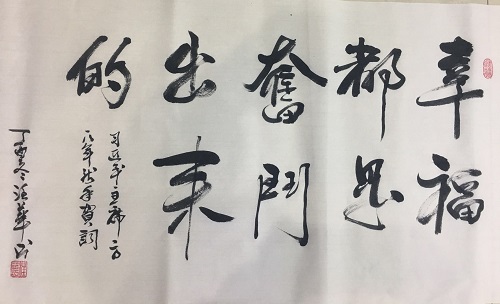 幸福
都是
奮鬥
出来
的
习近平主席二〇
一八年新年賀詞
丁酉冬 華书